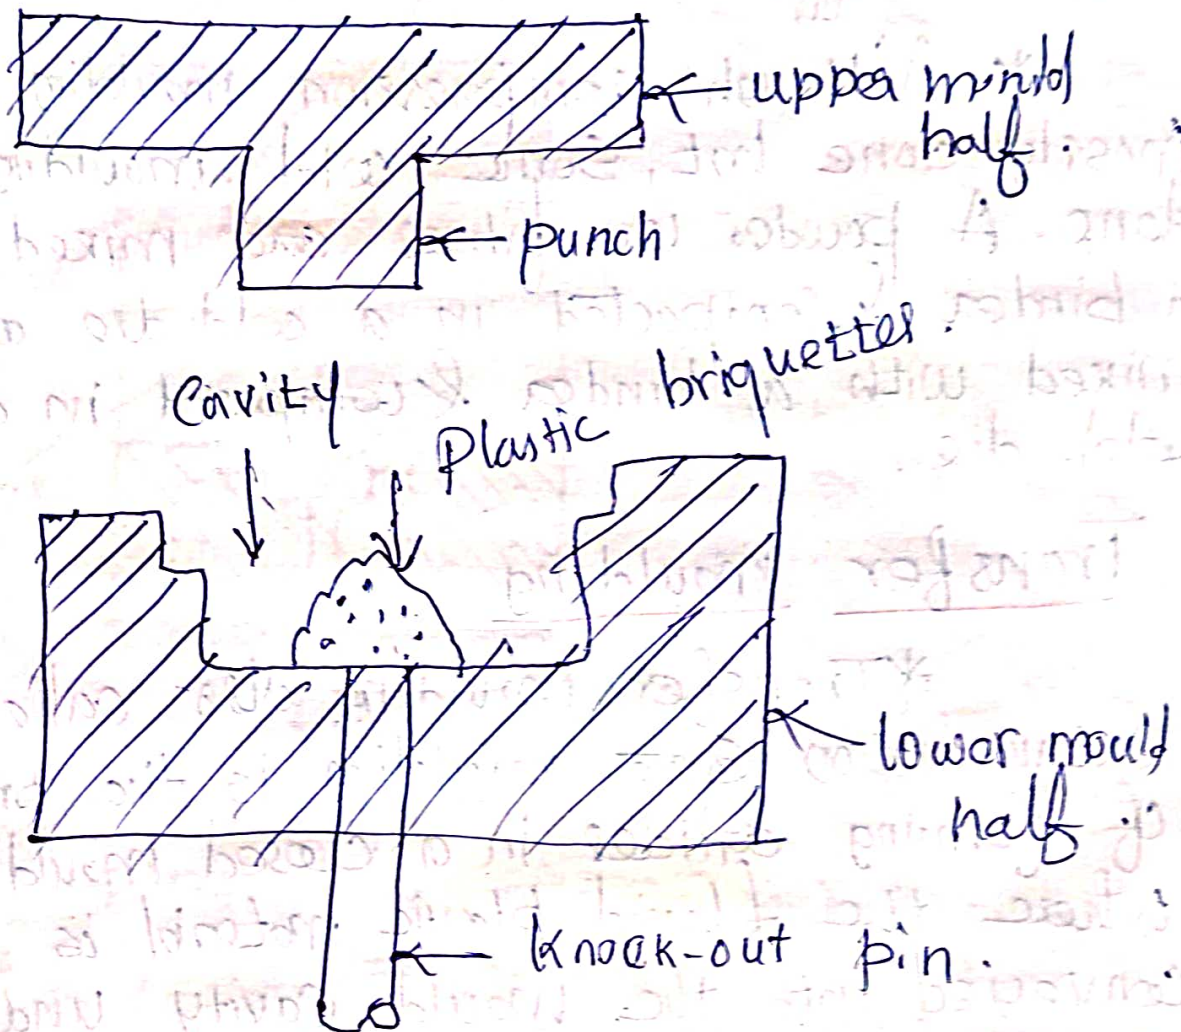 upper mould
half.
punch
Cavity
Plastic briquettes.
lower mould
half.
Knock-out pin.